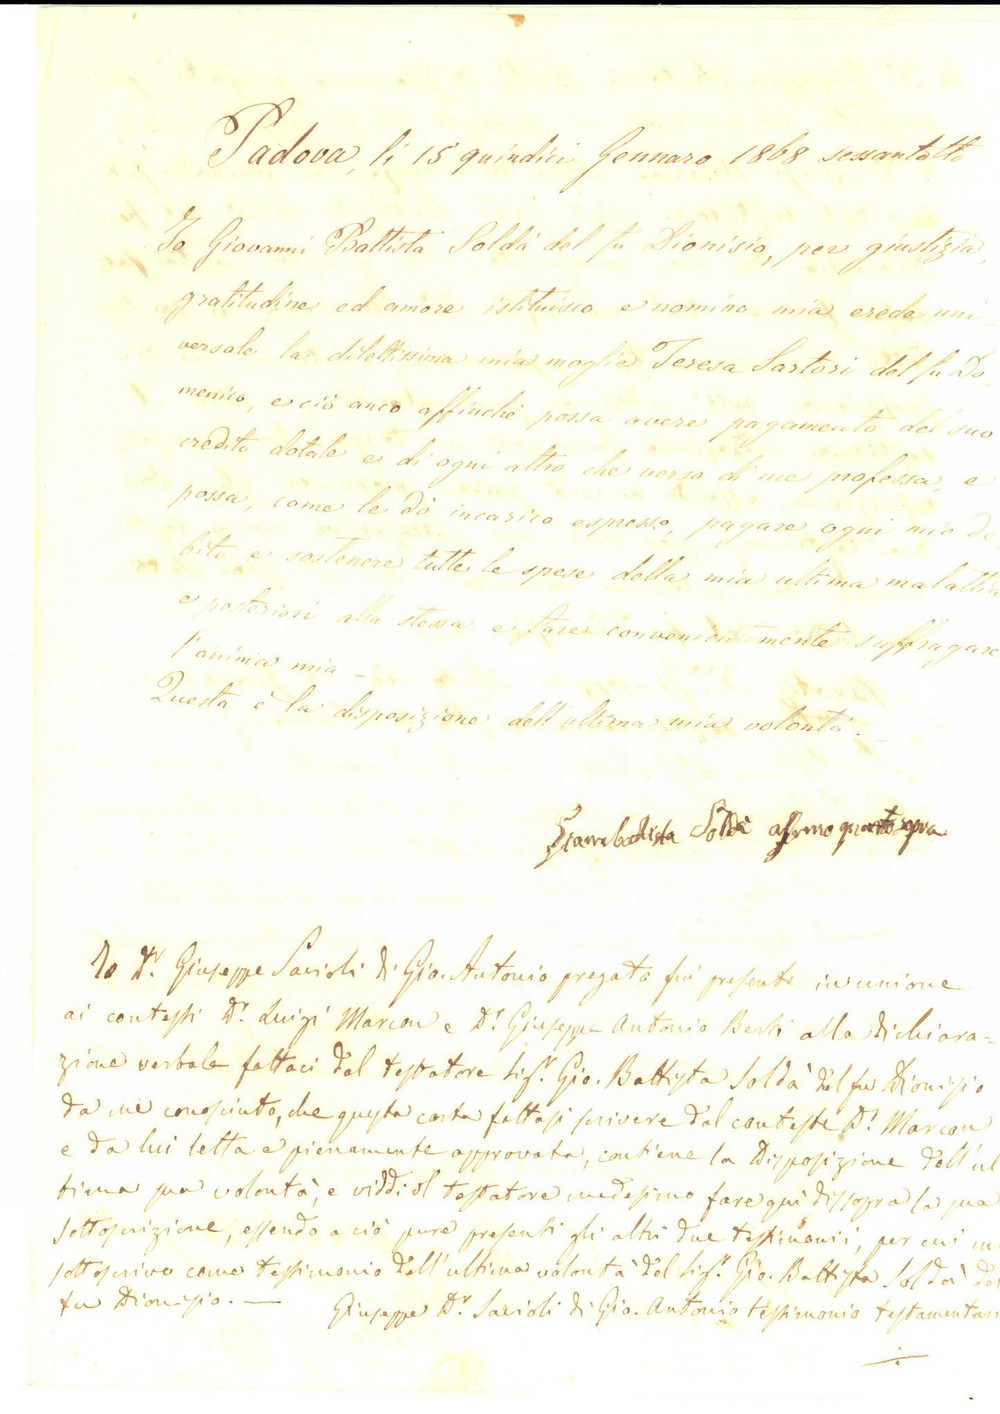 Padova, li 15 quindici Gennaro 1868 sessantotto
Io Giovanni Battista Soldà del fu Dionisio, per giustizia,
gratitudine ed amore istituisco e nomino mia erede uni-
versale la dilettissima mia moglie Teresa Sartori del fu Do-
menico, e ciò anco affinché possa avere pagamento del suo
credito dotale e di ogni altro che verso di me professa, e
possa, come le dò incarico espresso, pagare ogni mio de
bito e sostenere tutte le spese della mia ultima malattia
e posteriori alla stessa e fare convenientemente suffragare
l'anima mia.-
Questa è la disposizione dell'ultima mia volontà.-
Giannbatista Soldà affermo quanto sopra
Io Dr. Giuseppe Savioli di Gio. Antonio pregato fui presente in unione
ai contesti Dr. Luigi Marcon e Dr. Giuseppe Antonio Berti alla dichiara=
zione verbale fattaci dal testatore Sigr. Gio. Battista Soldà del fu Dionisio
da me conosciuto, che questa carta fattasi scrivere dal conteste Dr. Marcon
e da lui letta e pienamente approvata, contiene la disposizione dell'ul
tima sua volontà, e viddi il testatore medesimo fare qui dissopra la sua
sottoscrizione, essendo a ciò pure presenti gli altri due testimonii, per cui mi
sottoscrivo come testimonio dell'ultima volontà del Sigr. Gio. Battista Soldà del
fu Dionisio. —
Giuseppe Dr. Savioli di Gio. Antonio testimonio testamentar